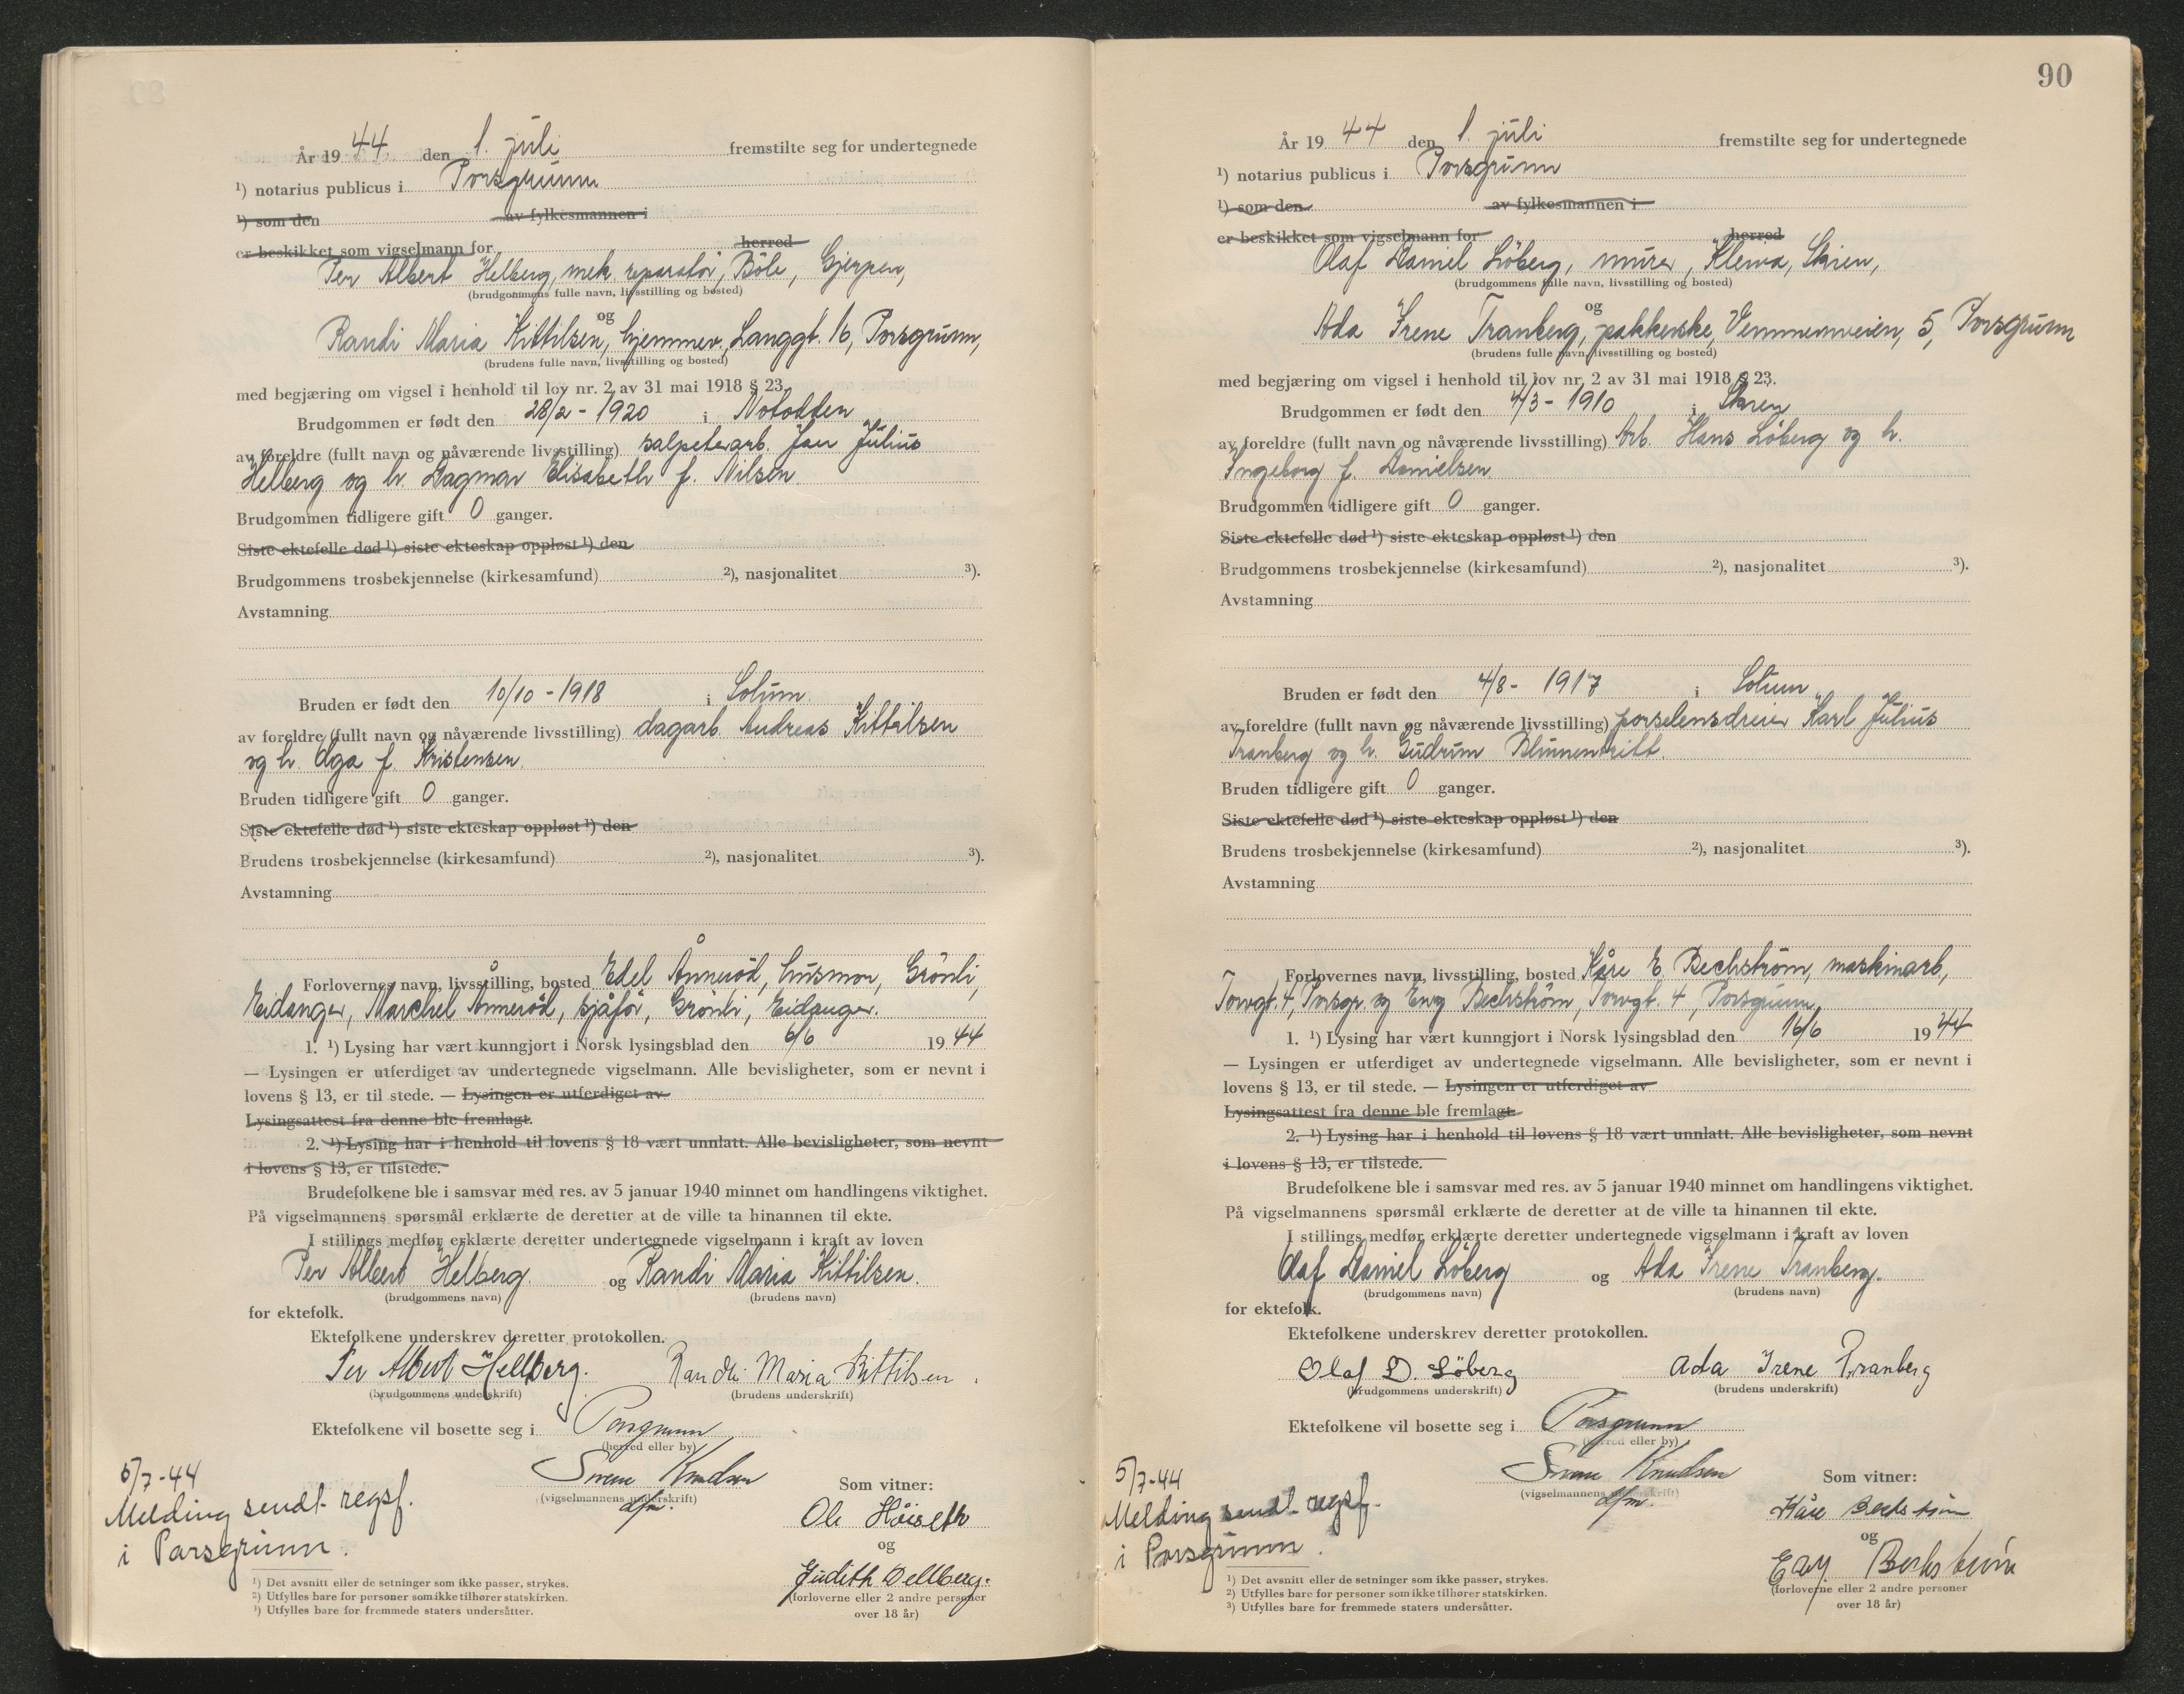 År 1944 den 1. juli fremstilte seg for undertegnede
¹) notarius publicus i Porsgrunn
¹) som den av fylkesmannen i
er beskikket som vigselmann for herred
Per Albert Helberg, mek. reparatør, Böle, Gjerpen,
(brudgommens fulle navn, livsstilling og bosted)
og
Randi Maria Kittilsen, hjemmev., Langgt. 16, Porsgrunn,
(brudens fulle navn, livsstilling og bosted)
med begjæring om vigsel i henhold til lov nr. 2 av 31 mai 1918 § 23.
Brudgommen er født den 28/2 - 1920 i Notodden
av foreldre (fullt navn og nåværende livsstilling) salpeterarb. Jan Julius
Helberg og h. Dagmar Elisabeth f. Nilsen.
Brudgommen tidligere gift 0 ganger.
Siste ektefelle død ¹) siste ekteskap oppløst ¹) den
Brudgommens trosbekjennelse (kirkesamfund) ²), nasjonalitet ³).
Avstamning
Bruden er født den 10/10 - 1918 i Solum.
av foreldre (fullt navn og nåværende livsstilling) dagarb. Andreas Kittilsen
og h. Aga f. Kristensen.
Bruden tidligere gift 0 ganger.
Siste ektefelle død ¹) siste ekteskap oppløst ¹) den
Brudens trosbekjennelse (kirkesamfund) ²), nasjonalitet ³).
Avstamning
Forlovernes navn, livsstilling, bosted Edel Ånnerød, husmor, Grönli,
Eidanger, Marchel Ånneröd, sjåfør, Grönli, Eidanger.
1. ¹) Lysing har vært kunngjort i Norsk lysingsblad den 6/6 1944
— Lysingen er utferdiget av undertegnede vigselmann. Alle bevisligheter, som er nevnt i
lovens § 13, er til stede. — Lysingen er utferdiget av
Lysingsattest fra denne ble fremlagt.
2. ¹) Lysing har i henhold til lovens § 18 vært unnlatt. Alle bevisligheter, som nevnt
i lovens § 13, er tilstede.
Brudefolkene ble i samsvar med res. av 5 januar 1940 minnet om handlingens viktighet.
På vigselmannens spørsmål erklærte de deretter at de ville ta hinannen til ekte.
I stillings medfør erklærte deretter undertegnede vigselmann i kraft av loven
Per Albert Helberg og Randi Maria Kittilsen.
(brudgommens navn) (brudens navn)
for ektefolk.
Ektefolkene underskrev deretter protokollen.
Per Albert Hellberg. Randi Maria Kittilsen.
(brudgommens underskrift) (brudens underskrift)
Ektefolkene vil bosette seg i Porsgrunn
(herred eller by)
5/7-44
Melding sendt regsf.
i Porsgrunn.
Knudsen
(vigselmannens underskrift)
dfm.
Som vitner:
Ole Höiseth
og
Judith Wellberg.
(forloverne eller 2 andre personer
over 18 år)
¹) Det avsnitt eller de setninger som ikke passer, strykes.
²) Utfylles bare for personer som ikke tilhører statskirken.
³) Utfylles bare for fremmede staters undersåtter.
90
År 1944 den 1. juli fremstilte seg for undertegnede
¹) notarius publicus i Porsgrunn
¹) som den av fylkesmannen i
er beskikket som vigselmann for herred
Olaf Daniel Löberg, murer, Kleiva, Skien,
(brudgommens fulle navn, livsstilling og bosted)
og
Ada Irene Tranberg, pakkerske, Vennemveien, 5, Porsgrunn
(brudens fulle navn, livsstilling og bosted)
med begjæring om vigsel i henhold til lov nr. 2 av 31 mai 1918 § 23.
Brudgommen er født den 4/3 - 1910 i Skien
av foreldre (fullt navn og nåværende livsstilling) Arb. Hans Löberg og h.
Ingeborg f. Danielsen.
Brudgommen tidligere gift 0 ganger.
Siste ektefelle død ¹) siste ekteskap oppløst ¹) den
Brudgommens trosbekjennelse (kirkesamfund) ²), nasjonalitet ³).
Avstamning
Bruden er født den 4/8 - 1917 i Solum
av foreldre (fullt navn og nåværende livsstilling) porselensdreier Karl Julius
Tranberg og h. Gudrun Blumentritt.
Bruden tidligere gift 0 ganger.
Siste ektefelle død ¹) siste ekteskap oppløst ¹) den
Brudens trosbekjennelse (kirkesamfund) ²), nasjonalitet ³).
Avstamning
Forlovernes navn, livsstilling, bosted Kåre E. Bechström, maskinarb,
Torvgt. 4, Porsgr. og Eny Bechström, Torvgt. 4, Porsgrunn.
1. ¹) Lysing har vært kunngjort i Norsk lysingsblad den 16/6 1944
— Lysingen er utferdiget av undertegnede vigselmann. Alle bevisligheter, som er nevnt i
lovens § 13, er til stede. — Lysingen er utferdiget av
Lysingsattest fra denne ble fremlagt.
2. ¹) Lysing har i henhold til lovens § 18 vært unnlatt. Alle bevisligheter, som nevnt
i lovens § 13, er tilstede.
Brudefolkene ble i samsvar med res. av 5 januar 1940 minnet om handlingens viktighet.
På vigselmannens spørsmål erklærte de deretter at de ville ta hinannen til ekte.
I stillings medfør erklærte deretter undertegnede vigselmann i kraft av loven
Olaf Daniel Löberg og Ada Irene Tranberg.
(brudgommens navn) (brudens navn)
for ektefolk.
Ektefolkene underskrev deretter protokollen.
Olaf D. Löberg Ada Irene Tranberg
(brudgommens underskrift) (brudens underskrift)
Ektefolkene vil bosette seg i Porsgrunn
(herred eller by)
5/7-44
Melding sendt regsf.
i Porsgrunn.
Knudsen
(vigselmannens underskrift)
dfm.
Som vitner:
Kåre Bechström
og
Eny Bechström
(forloverne eller 2 andre personer
over 18 år)
¹) Det avsnitt eller de setninger som ikke passer, strykes.
²) Utfylles bare for personer som ikke tilhører statskirken.
³) Utfylles bare for fremmede staters undersåtter.